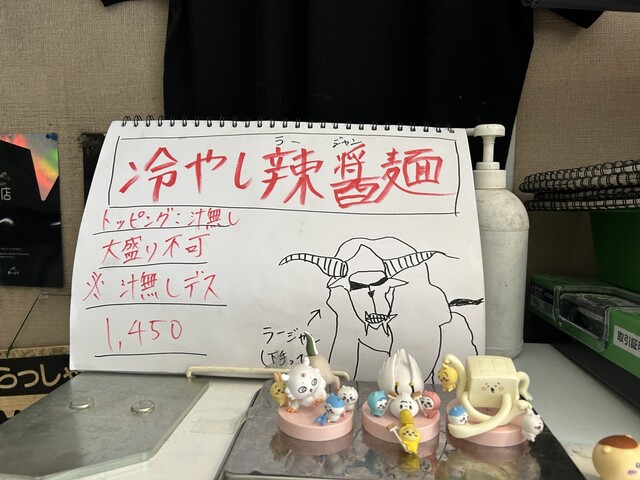 ラー ジャン
冷やし辣醤麺
トッピング:汁無し
大盛り不可
※ 汁無しデス
1,450
ラージャ
店
らっしゃ
取引証明